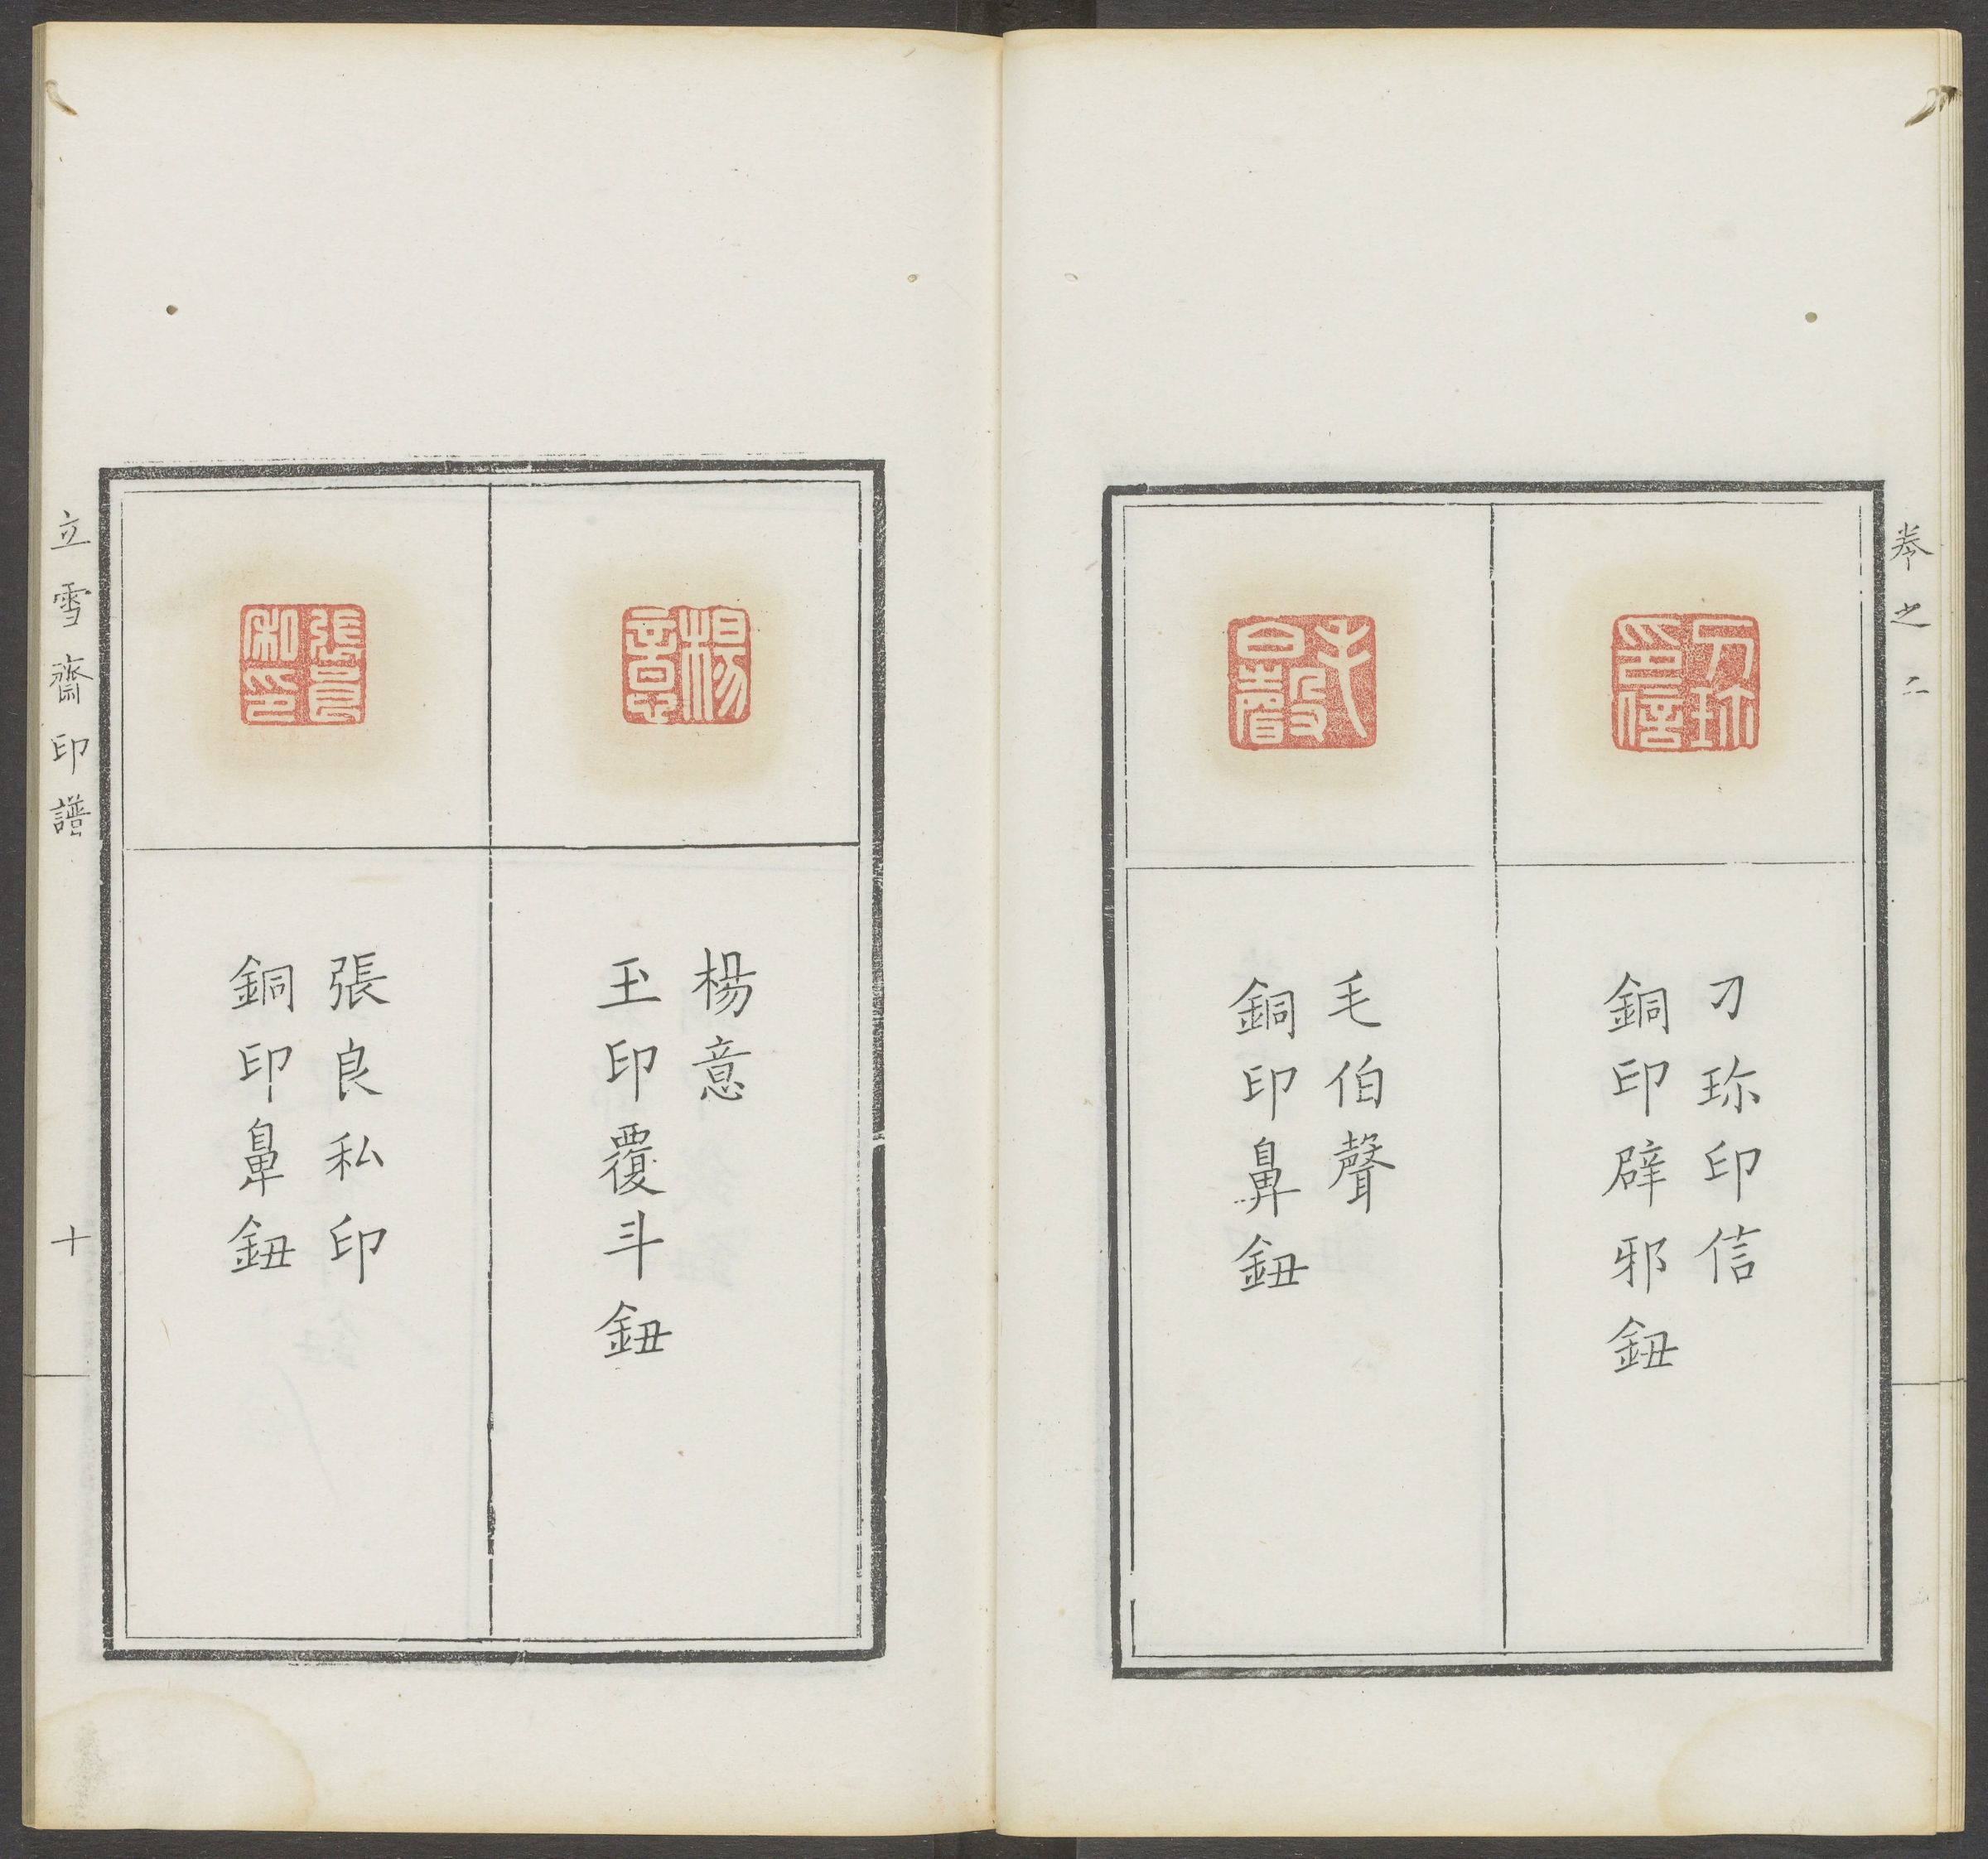 卷之二
刁珎印信
銅印辟邪鈕
毛伯聲
銅印鼻鈕
楊意
玉印覆斗鈕
張良私印
銅印鼻鈕
立雪齋印譜
十